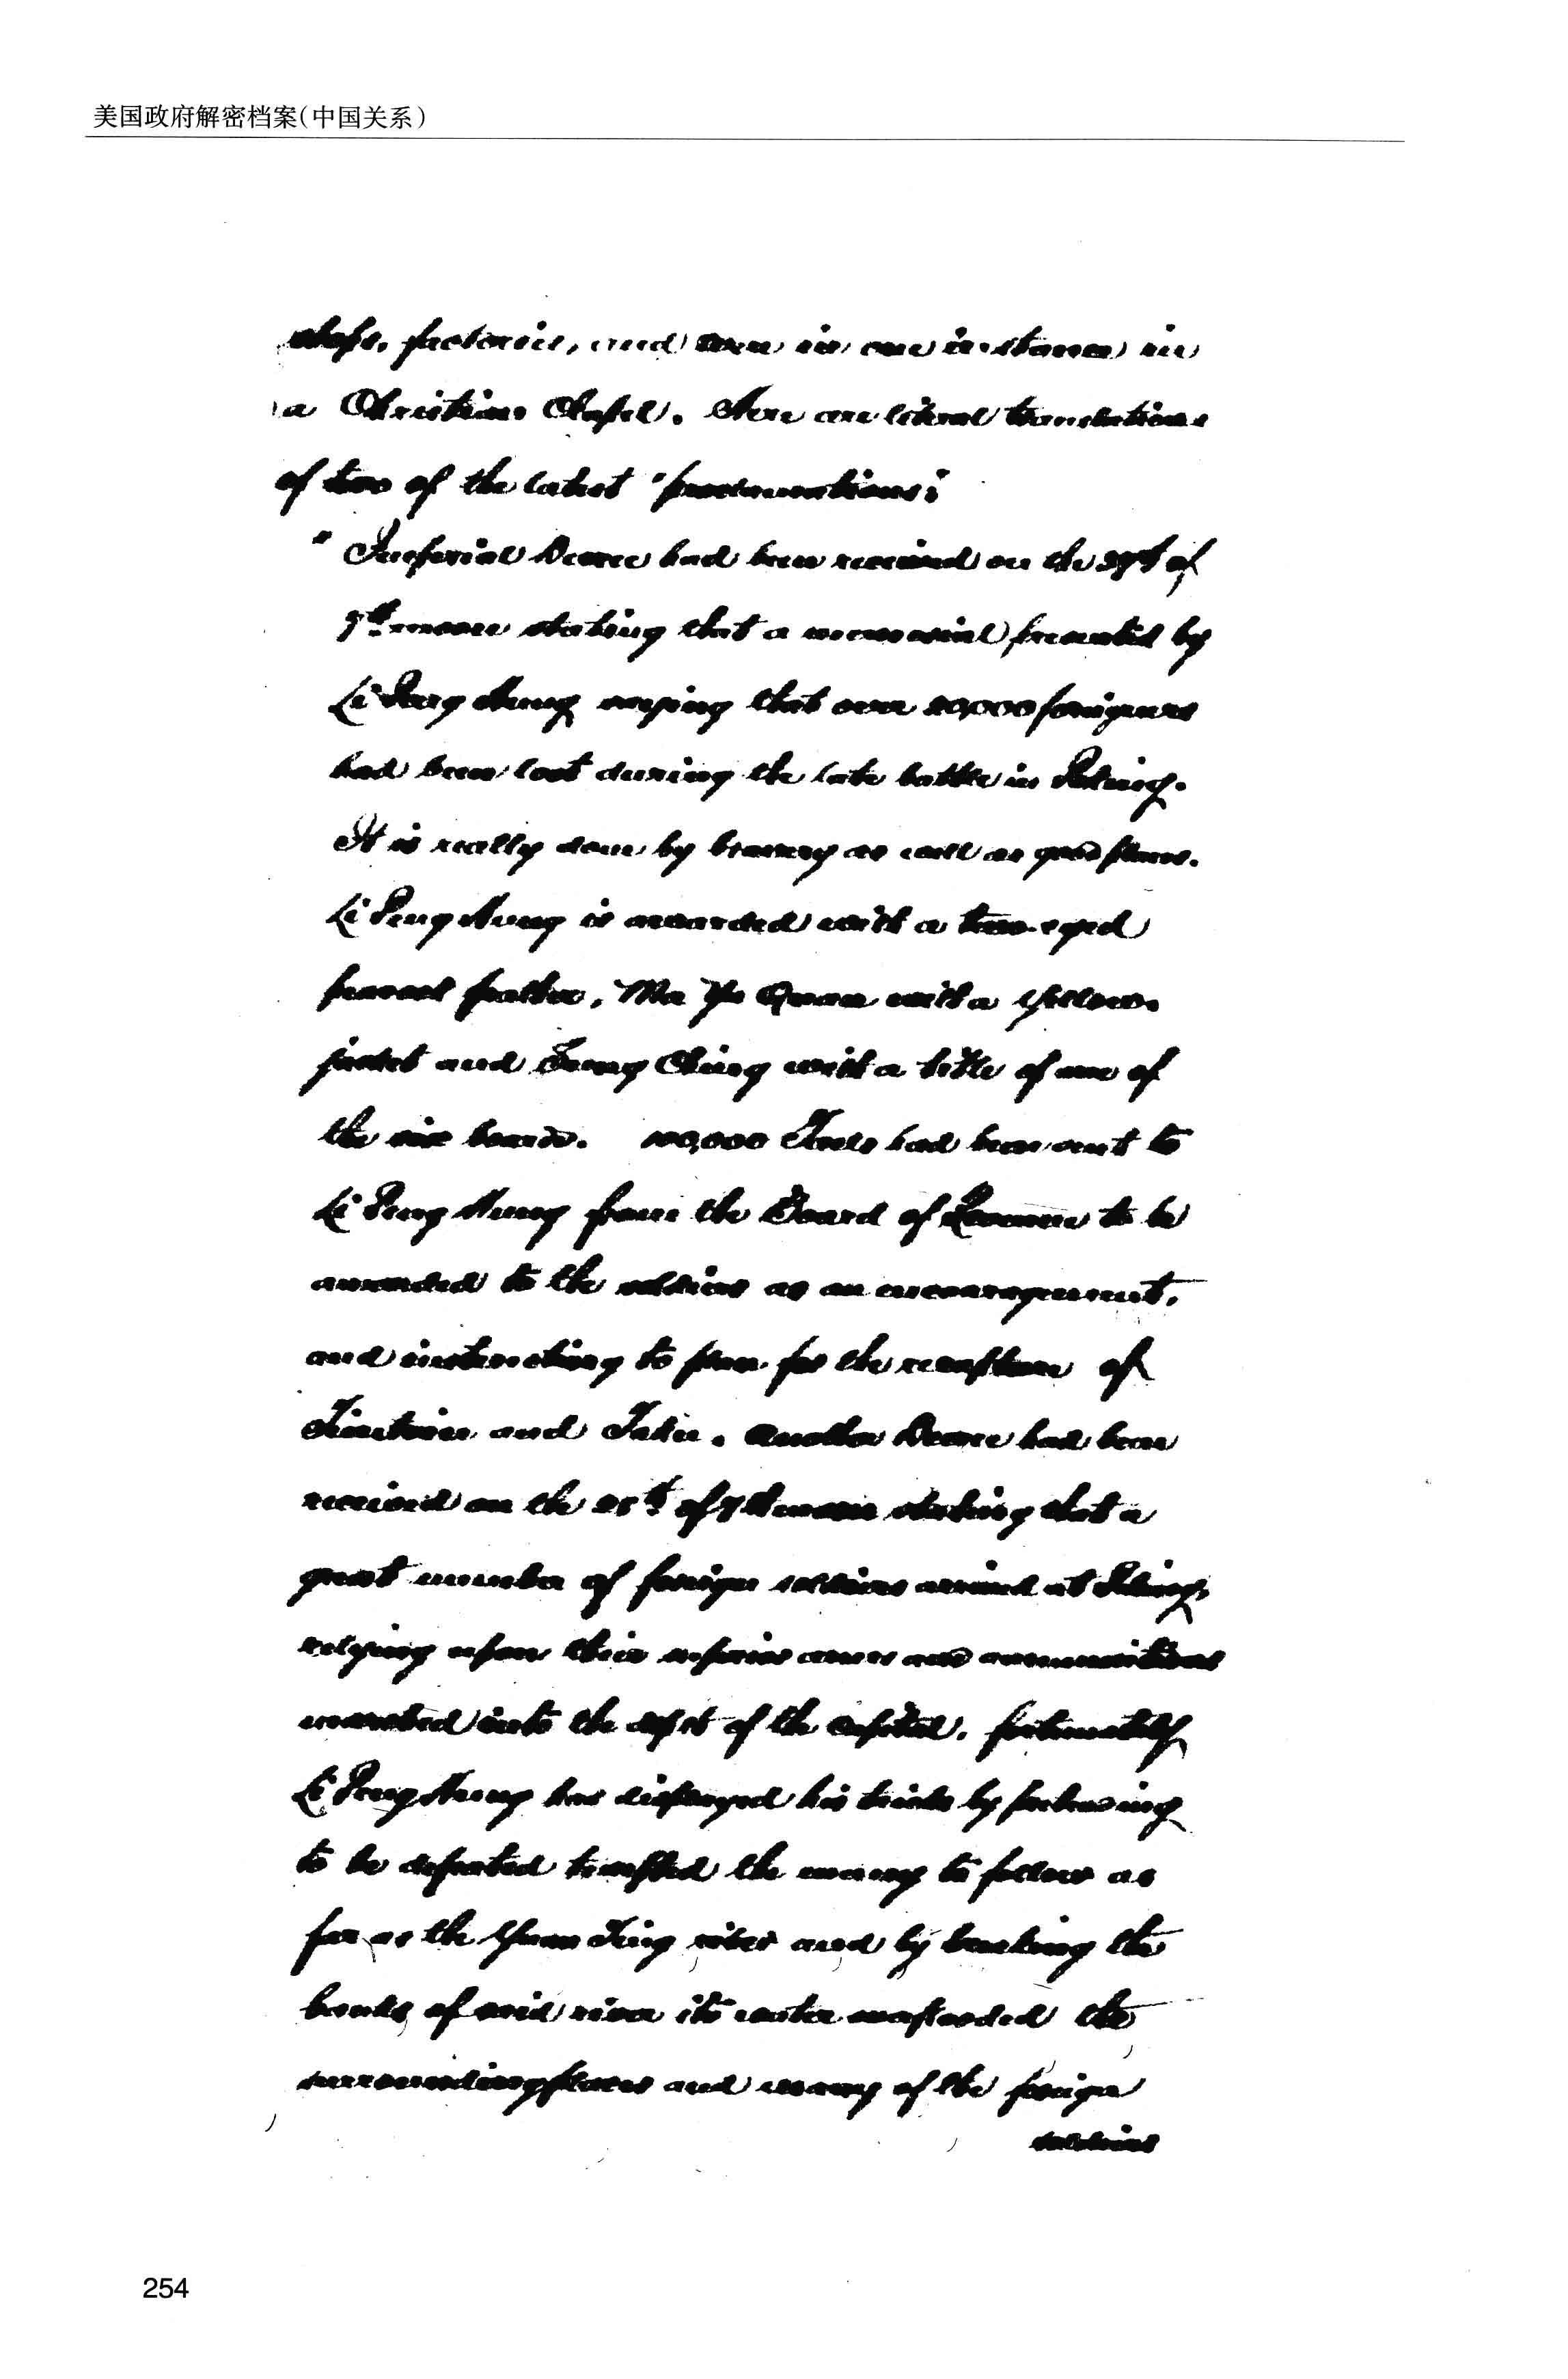 美国政府解密档案(中国关系)
shops, factories, and even in one instance in
a Christian Chapel. Here are literal translations
of two of the latest "proclamations:
" Imperial Decree had been received on the 27th of
7th moon stating that a memorial presented by
Li Peng Hung saying that over 20,000 foreigners
had been lost during the late battle in Peking.
It is really done by bravery as well as good plans.
Li Peng Hung is awarded with a two-eyed
peacock feather, Ma Yu Quan with a yellow
jacket and Sung Ching with a title of one of
the six boards. 100,000 Taels had been sent to
Li Peng Hung from the Board of Revenue to be
awarded to the soldiers as an encouragement,
and instructing to plan for the recapture of
Tientsin and Taku. Another Decree had been
received on the 25th of 7th moon stating that a
great number of foreign soldiers arrived at Peking,
relying upon their superior arms and ammunitions
marched into the of the Capital. fortunately
Li Peng Hung has displayed his tricks by
to be defeated tempted the enemy to follow as
far as the Yuan Ting river and by breaking the
banks of said river its water the
surrounding places and many of the foreign
soldiers
254